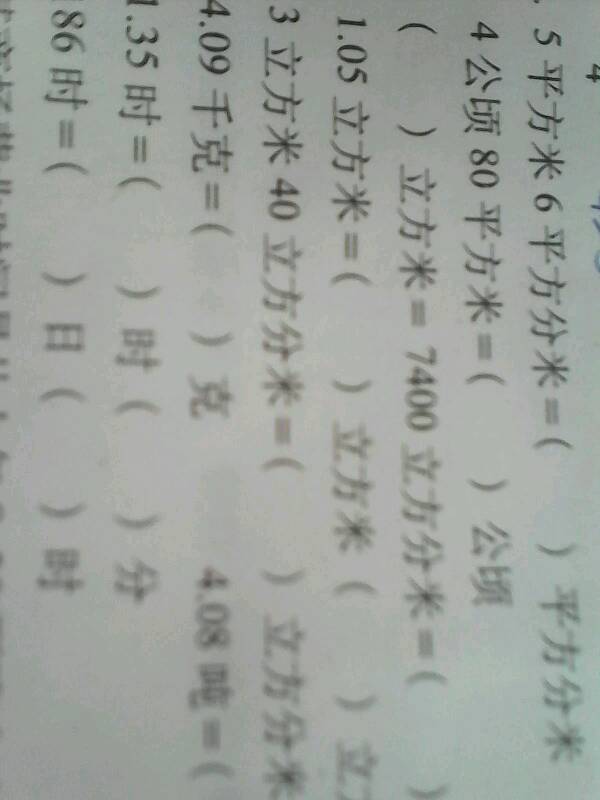 5 平方米 6 平方分米 =(    ) 平方分米
4 公顷 80 平方米 =(    ) 公顷
(    ) 立方米 = 7400 立方分米 =(    )
1.05 立方米 =(    ) 立方米 (    ) 立
3 立方米 40 立方分米 =(    ) 立方分米
4.09 千克 =(    ) 克 4.08 吨 =(
1.35 时 =(    ) 时 (    ) 分
86 时 =(    ) 日 (    ) 时